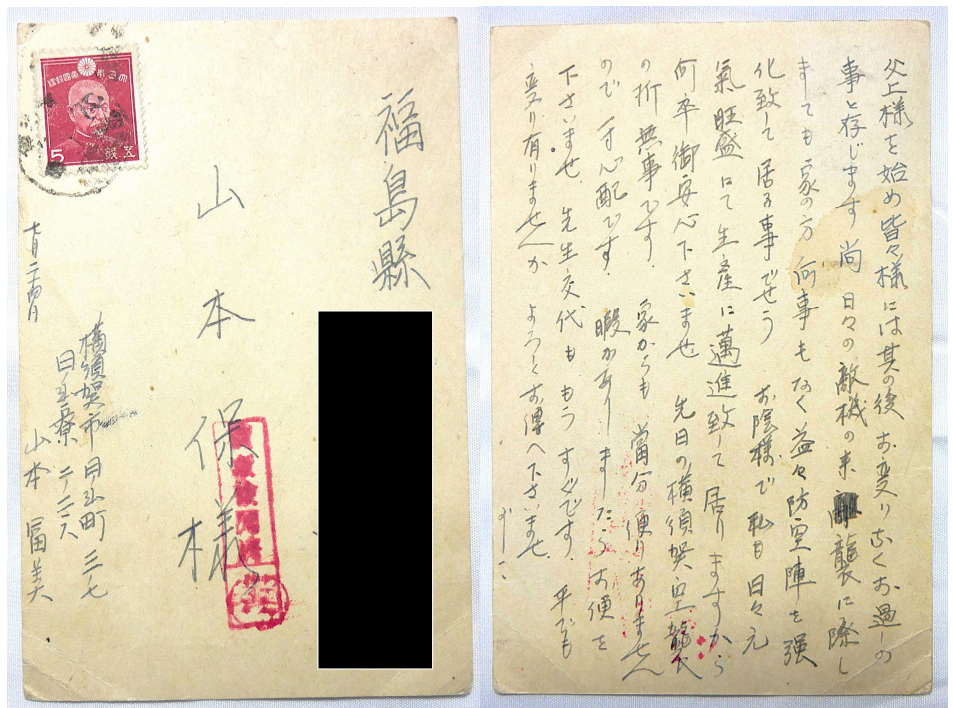 福島縣
山本保義様
大日本帝國郵便
5 五銭
七月二四日
横須賀市日出町三七
日出寮二二六
山本冨美
父上様を始め皆々様には其の後お変りなくお過しの
事と存じます尚日々の敵機の来襲に際し
ましても家の方何事もなく益々防空陣を強
化致して居る事でせうお陰様で私も日々元
氣旺盛にて生産に邁進致して居りますから
何卒御安心下さいませ先日の横須賀空襲
の折無事です。家からも當分便りありません
ので心配です。暇がありましたらお便を
下さいませ。先生交代ももうすぐです。平でも
変り有りませんかよろしくお傳へ下さいませ。